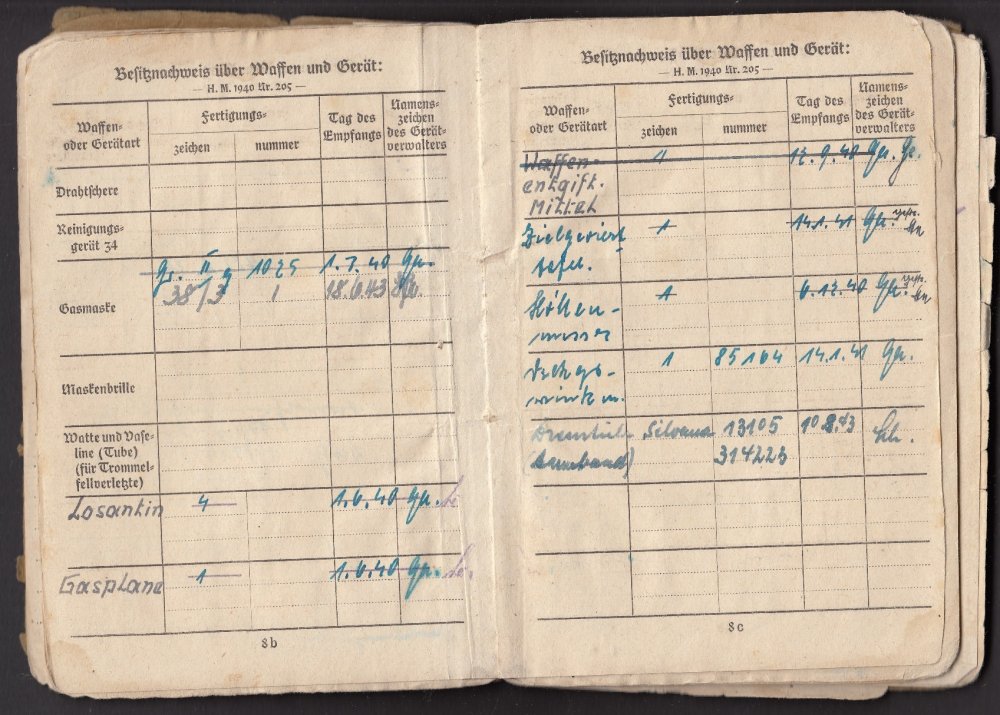 Besitznachweis über Waffen und Gerät:
— H. M. 1940 Nr. 205 —
Waffen-
oder Geräteart
Fertigungs-
zeichen
nummer
Tag des
Empfangs
Namens-
zeichen
des Gerät-
verwalters
Drahtschere
Reinigungs-
gerät 34
Gasmaske
Gr. II 1025 1.7.40
38/3 1 18.6.43
Maskenbrille
Watte und Vase-
line (Tube)
(für Trommel-
fellverletzte)
Losantin 4 1.6.40
Gasplane 1 1.6.40
8b
Besitznachweis über Waffen und Gerät:
— H. M. 1940 Nr. 205 —
Waffen-
oder Geräteart
Fertigungs-
zeichen
nummer
Tag des
Empfangs
Namens-
zeichen
des Gerät-
verwalters
Waffen- 1 12.9.40
entgift.
Mittel
1 14.1.41
1 6.12.40
messer
1 85164 14.1.41
Silvana 13105 10.8.43
(Armband) 314225
8c